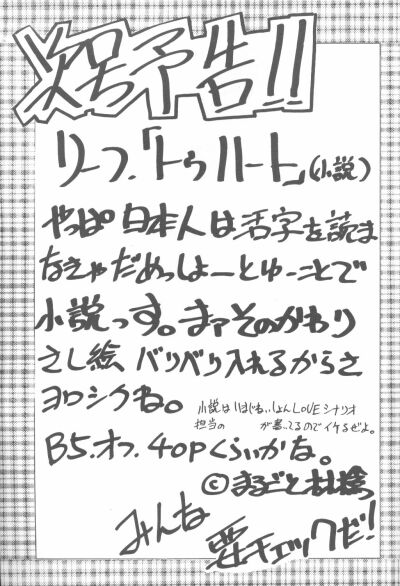 次号予告!!
リーフ.「トゥハート」(小説)
やっぱ日本人は活字を読ま
なきゃだめっしょーとゆーことで
小説っす。まァそのかわり
さし絵、バリバリ入れるからさ
ヨロシクね。
小説は LOVEシナリオ
担当の が書いてるのでイケるぜよ。
B5.オフ.40Pくらいかな。
©まるごと
みんな
要チェックだ!